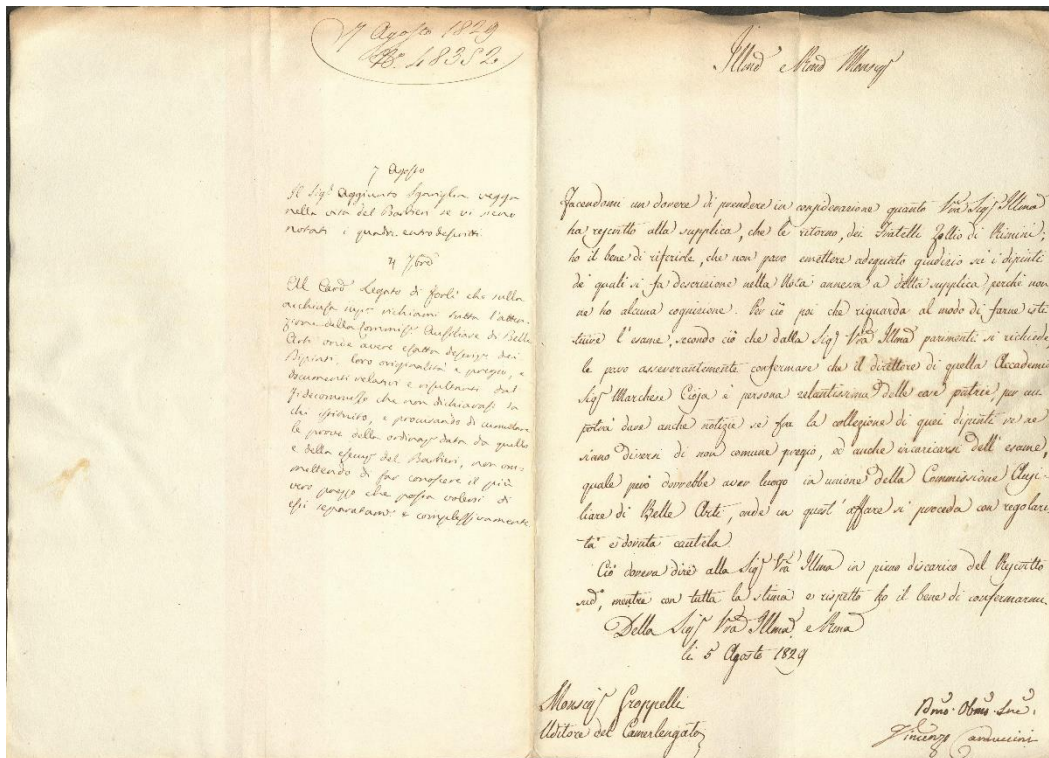 7 Agosto 1829
N.° 48352
7 Agosto
Il Sig.r Aggiunto Sgariglia vegga
nella vita del Barbieri se vi sieno
notati i quadri entrodescritti
4 7bre
Al Card Legato di Forlì che sulla
acchiusa richiami tutta l'atten-
zione della Commiss Ausiliare di Belle
Arti onde avere esatta descriz dei
Dipinti, loro originalità e pregio, e
documenti relativi e risultanti dal
Fidecommisso che non dichiarasi da
chi istituito, e procurando di cumulare
le prove della data da quello
e della del Barbieri, non om-
mettendo di far conoscere il più
vero prezzo che possa volersi di
essi separatam e complessivamente
Illmo e Rmo Monsigr
Facendomi un dovere di prendere in considerazione quanto Vra Sigr Illma
ha rescritto alla supplica, che le ritorno, dei Fratelli Zollio di Rimini;
ho il bene di riferirle, che non posso emettere adequato giudizio su i dipinti
de quali si fa descrizione nella Nota annessa a detta supplica perche non
ne ho alcuna cognizione. Per ciò poi che riguarda al modo di farne isti
tuire l'esame, secondo ciò che dalla Sigr Vra Illma parimenti si richiede,
le posso asseverantemente confermare che il direttore di quella Accademia
Sigr Marchese Cioja è persona zelantissima delle cose patrie, per cui
potrà dare anche notizie se fra la collezione di quei dipinti ve ne
siano diversi di non comune pregio, ed anche incaricarsi dell'esame,
quale però dovrebbe aver luogo in unione della Commissione Ausi-
liare di Belle Arti, onde in quest'affare si proceda con regolari
tà e dovuta cautela.
Ciò doveva dire alla Sigr Vra Illma in pieno discarico del Rescritto
sudo, mentre con tutta la stima e rispetto ho il bene di confermarmi
Della Sigr Vra Illma e Rma
li 5 Agosto 1829
Monsigr Groppelli
Uditore del Camerlengato
Dmo Obmo Sre
Vincenzo Camuccini